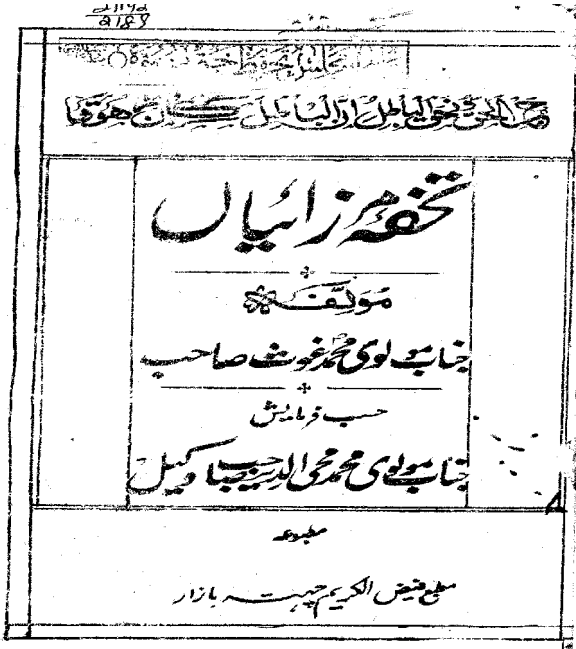 ۲۱۱۷۲
۲۱۸۹
جاء الحق وزهق الباطل ان الباطل كان زهوقا
تحفہ مرزائیاں
مؤلفہ
جناب مولوی محمد غوث صاحب
حسب فرمایش
جناب مولوی محمد محی الدین صاحب وکیل
مطبوعہ
مطبع فیض الکریم چھتہ بازار